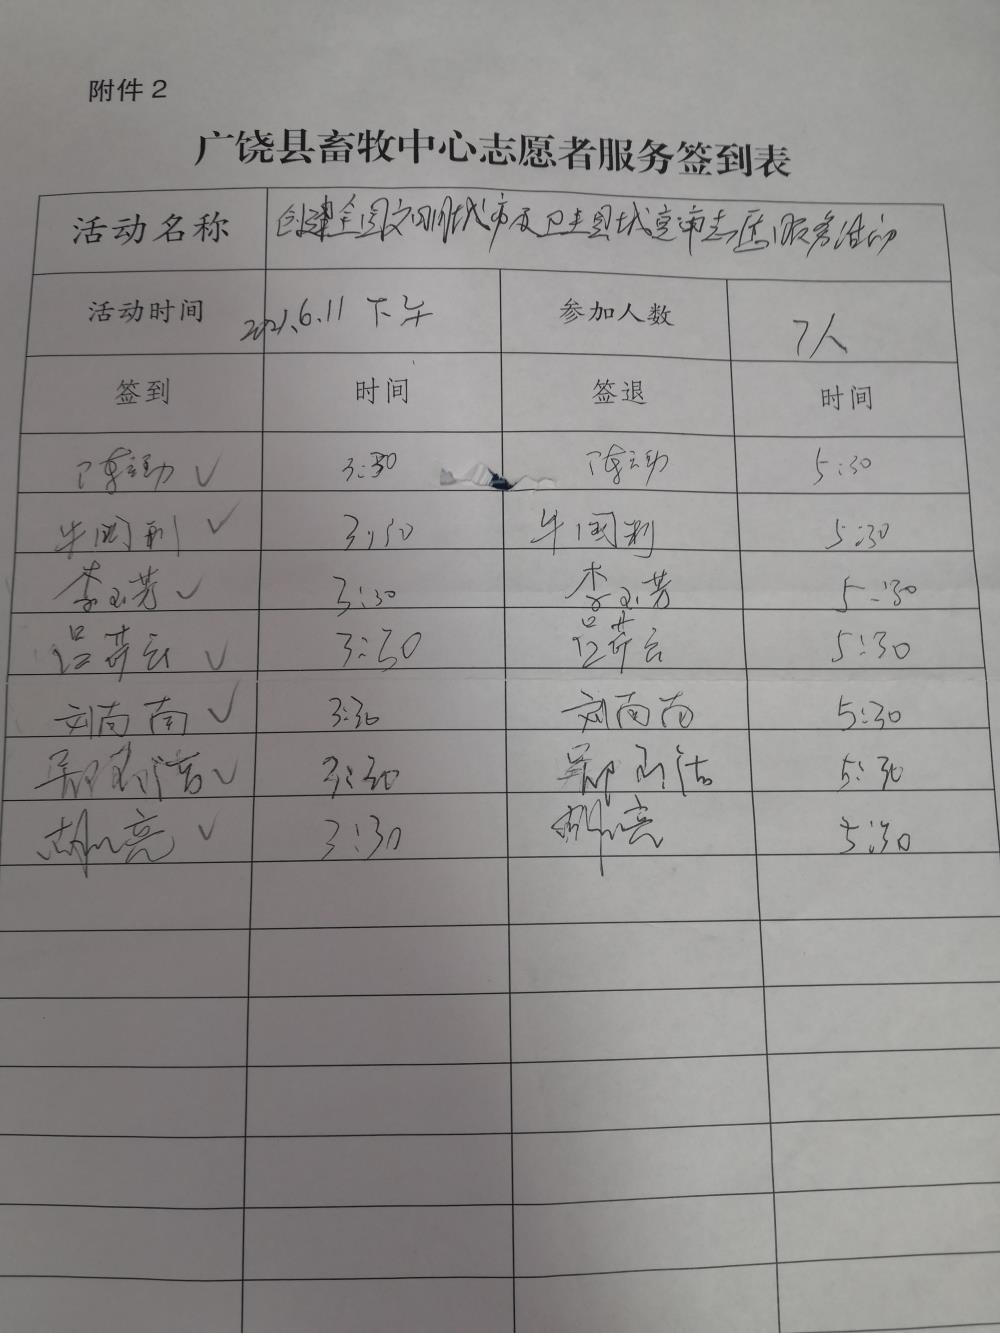 附件2
广饶县畜牧中心志愿者服务签到表
活动名称 创建全国文明城市及卫生县城宣传志愿服务活动
活动时间 2021.6.11 下午 参加人数 7人
签到 时间 签退 时间
陈 3:30 陈 5:30
牛国利 ✓ 3:30 牛国利 5:30
李玉芳 ✓ 3:30 李玉芳 5:30
吕荣云 ✓ 3:30 吕荣云 5:30
刘南南 ✓ 3:30 刘南南 5:30
3:30 5:30
胡亮 ✓ 3:30 胡亮 5:30